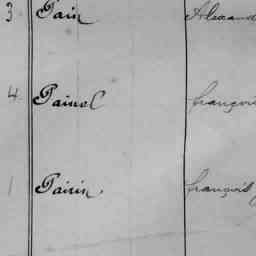 3 Pain Alexand
4 Painel François
1 Pairin François